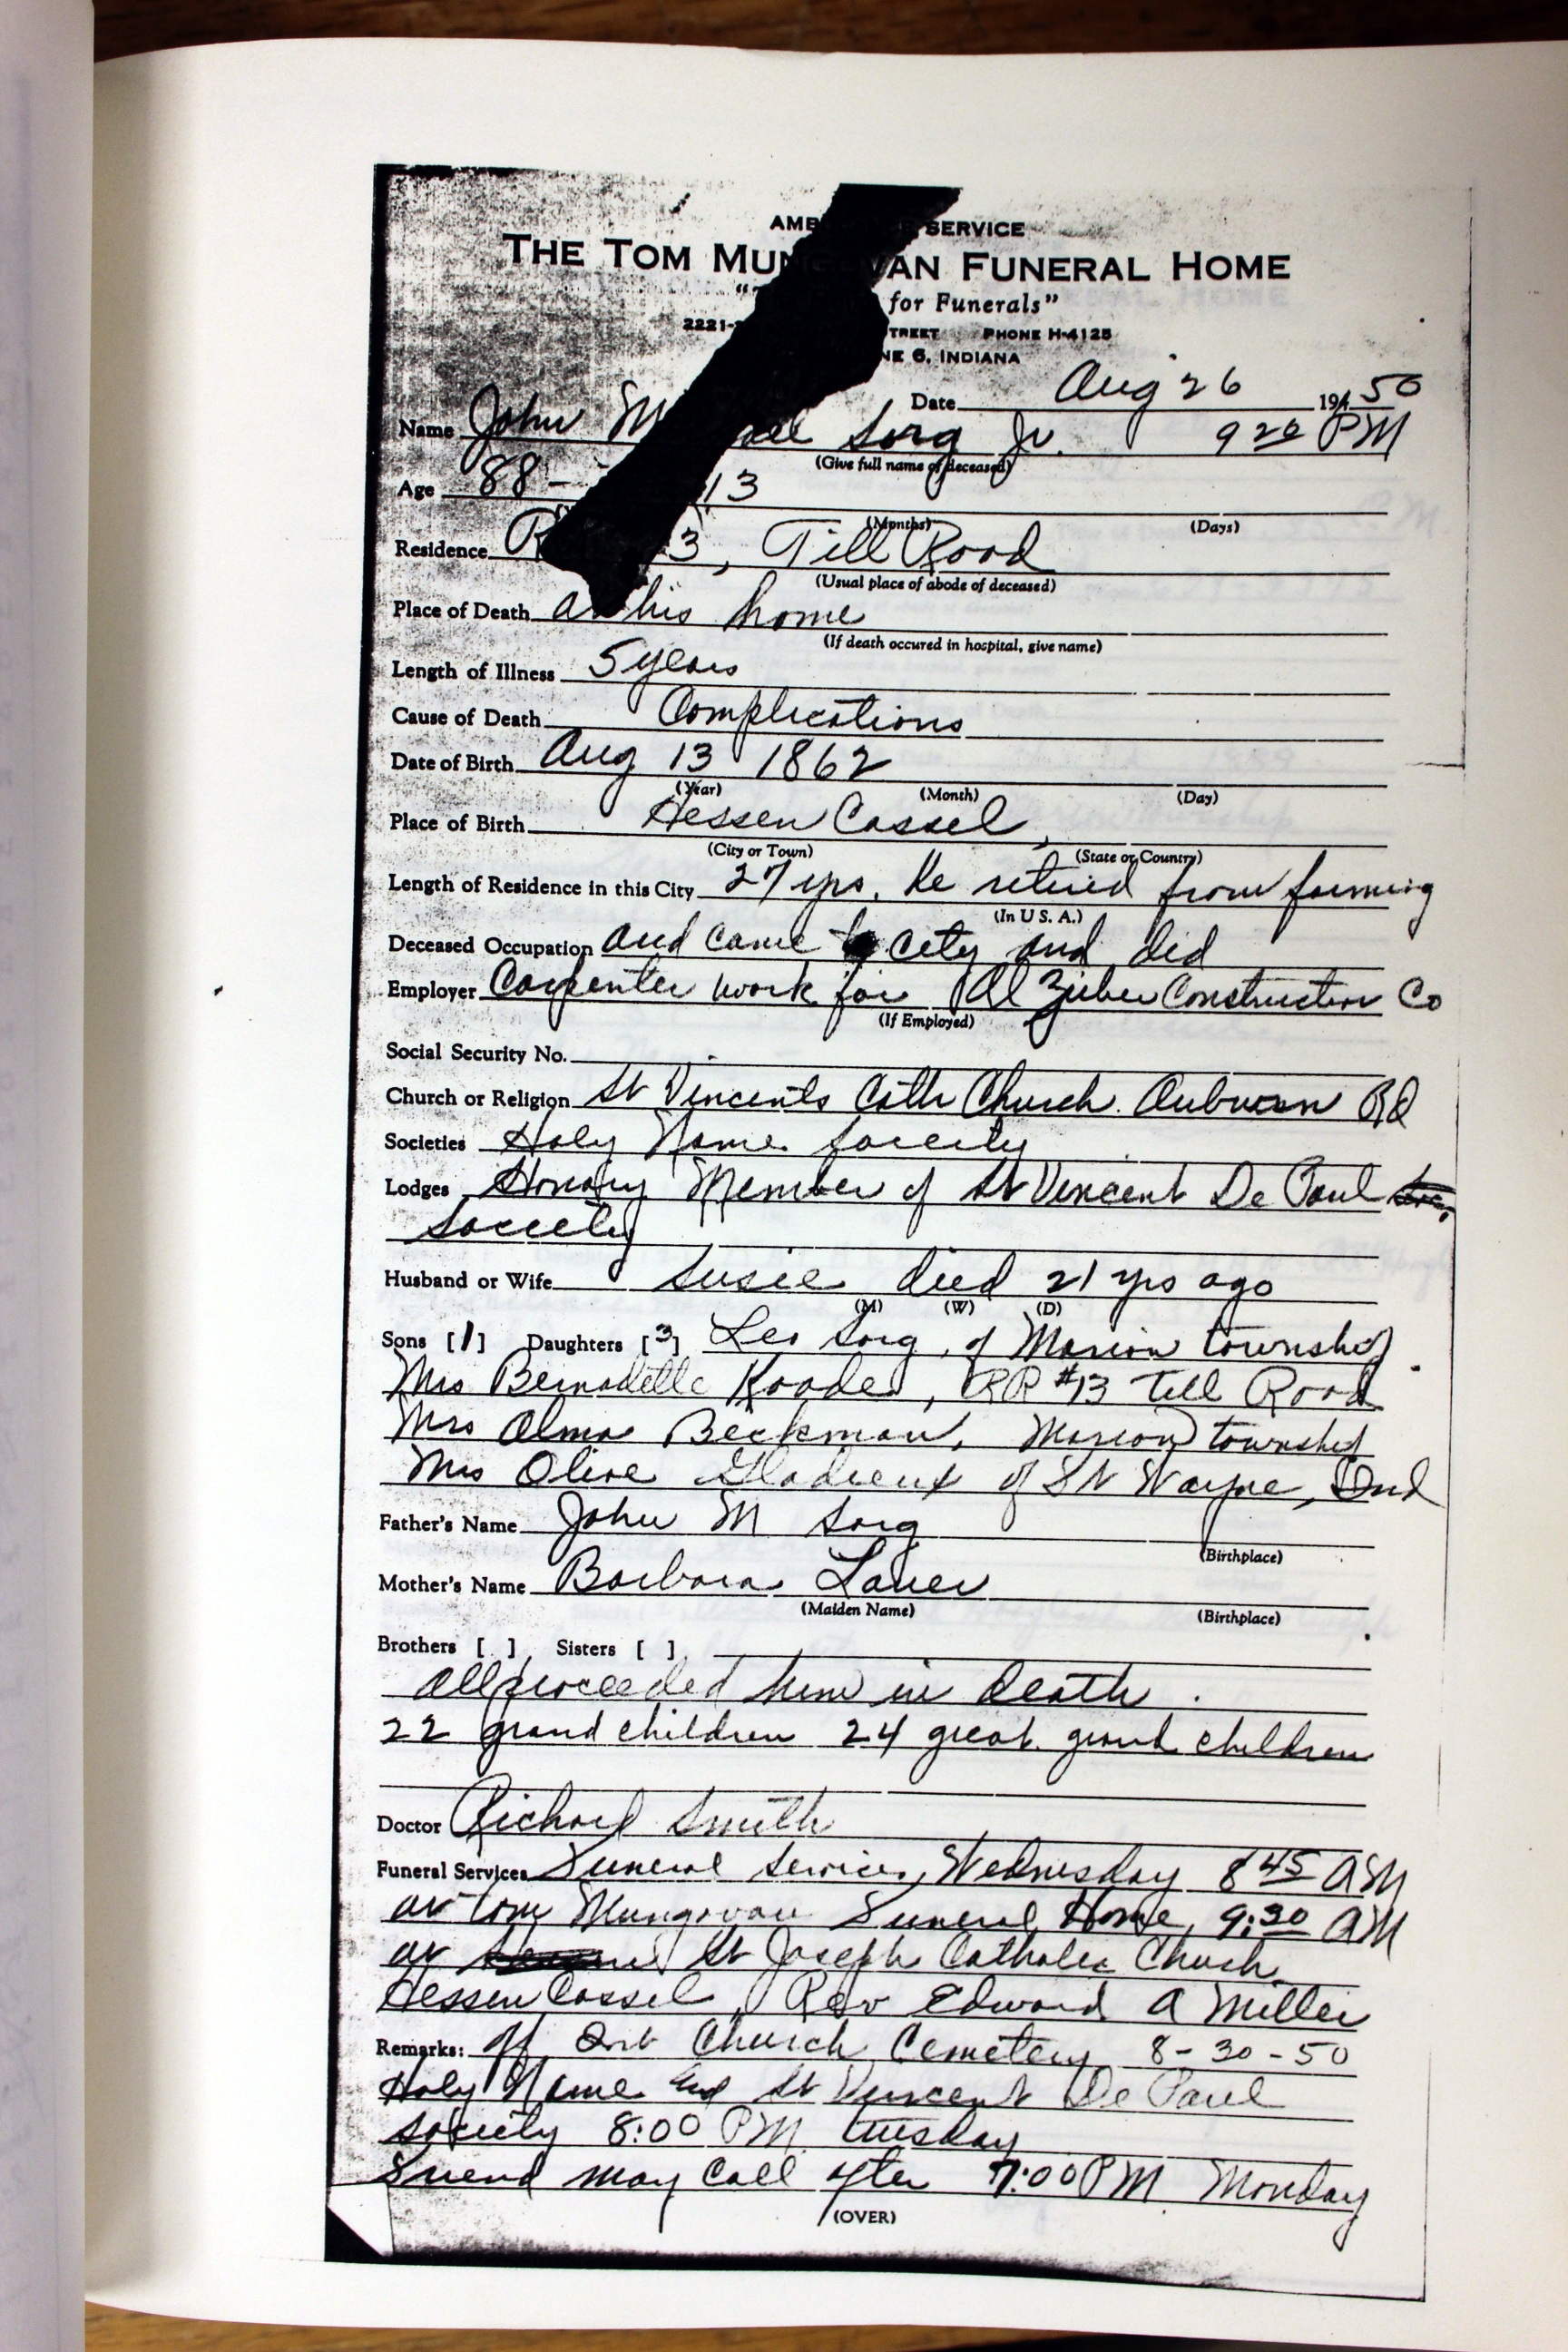 AMB SERVICE
THE TOM MUNGOVAN FUNERAL HOME
for Funerals"
2221- TREET PHONE H-4125
NE 6, INDIANA
Date Aug 26 1950
Name John M ael Sorg Jr. 9 20 PM
(Give full name of deceased)
Age 88 - 13
(Months) (Days)
Residence R 3, Till Road
(Usual place of abode of deceased)
Place of Death at his home
(If death occured in hospital, give name)
Length of Illness 5 years
Cause of Death Complications
Date of Birth Aug 13 1862
(Year) (Month) (Day)
Place of Birth Hessen Cassel,
(City or Town) (State or Country)
Length of Residence in this City 27 yrs. He retired from farming
(In U S. A.)
Deceased Occupation and came to city and did
Employer Carpenter work for Al Zuber Construction Co
(If Employed)
Social Security No.
Church or Religion St Vincents Cath Church. Auburn Rd
Societies Holy Name Society
Lodges Honary Member of St Vincent De Paul
Society
Husband or Wife Susie died 21 yrs ago
(M) (W) (D)
Sons [1] Daughters [3] Leo Sorg, of Marion township
Mrs Bernadette Roades, RR #13 Till Road
Mrs Alma Beckman, Marion township
Mrs Olive Gladieux of Ft Wayne, Ind
Father's Name John M Sorg
(Birthplace)
Mother's Name Barbara Lauer
(Maiden Name) (Birthplace)
Brothers [ ], Sisters [ ]
all proceeded him in death.
22 grand children 24 great grand children
Doctor Richard Smith
Funeral Services Funeral Services, Wednesday 8 45 AM
at Tom Mungovan Funeral Home, 9:30 AM
at St Joseph Catholic Church
Hessen Cassel, Rev Edward A Miller
Remarks: off. Int Church Cemetery 8-30-50
Holy Name and St Vincent De Paul
society 8:00 PM Tuesday
Friend may Call after 7:00 PM Monday
(OVER)